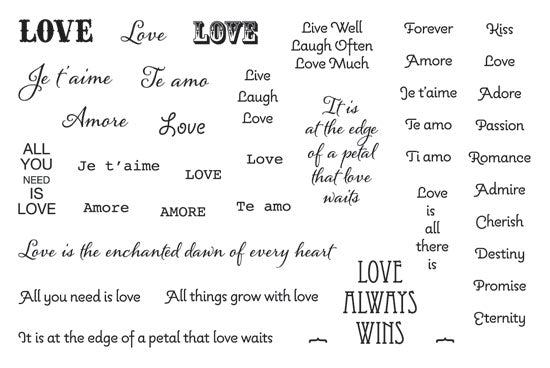 LOVE
Love
LOVE
Je t'aime
Te amo
Live
Laugh
Love
Amore
Love
ALL
YOU
NEED
IS
LOVE
Je t'aime
LOVE
Love
Amore
AMORE
Te amo
Live Well
Laugh Often
Love Much
It is
at the edge
of a petal
that love
waits
Forever
Amore
Je t'aime
Te amo
Ti amo
Love
is
all
there
is
Kiss
Love
Adore
Passion
Romance
Admire
Cherish
Destiny
Promise
Eternity
Love is the enchanted dawn of every heart
All you need is love
All things grow with love
It is at the edge of a petal that love waits
{
LOVE
ALWAYS
WINS
}